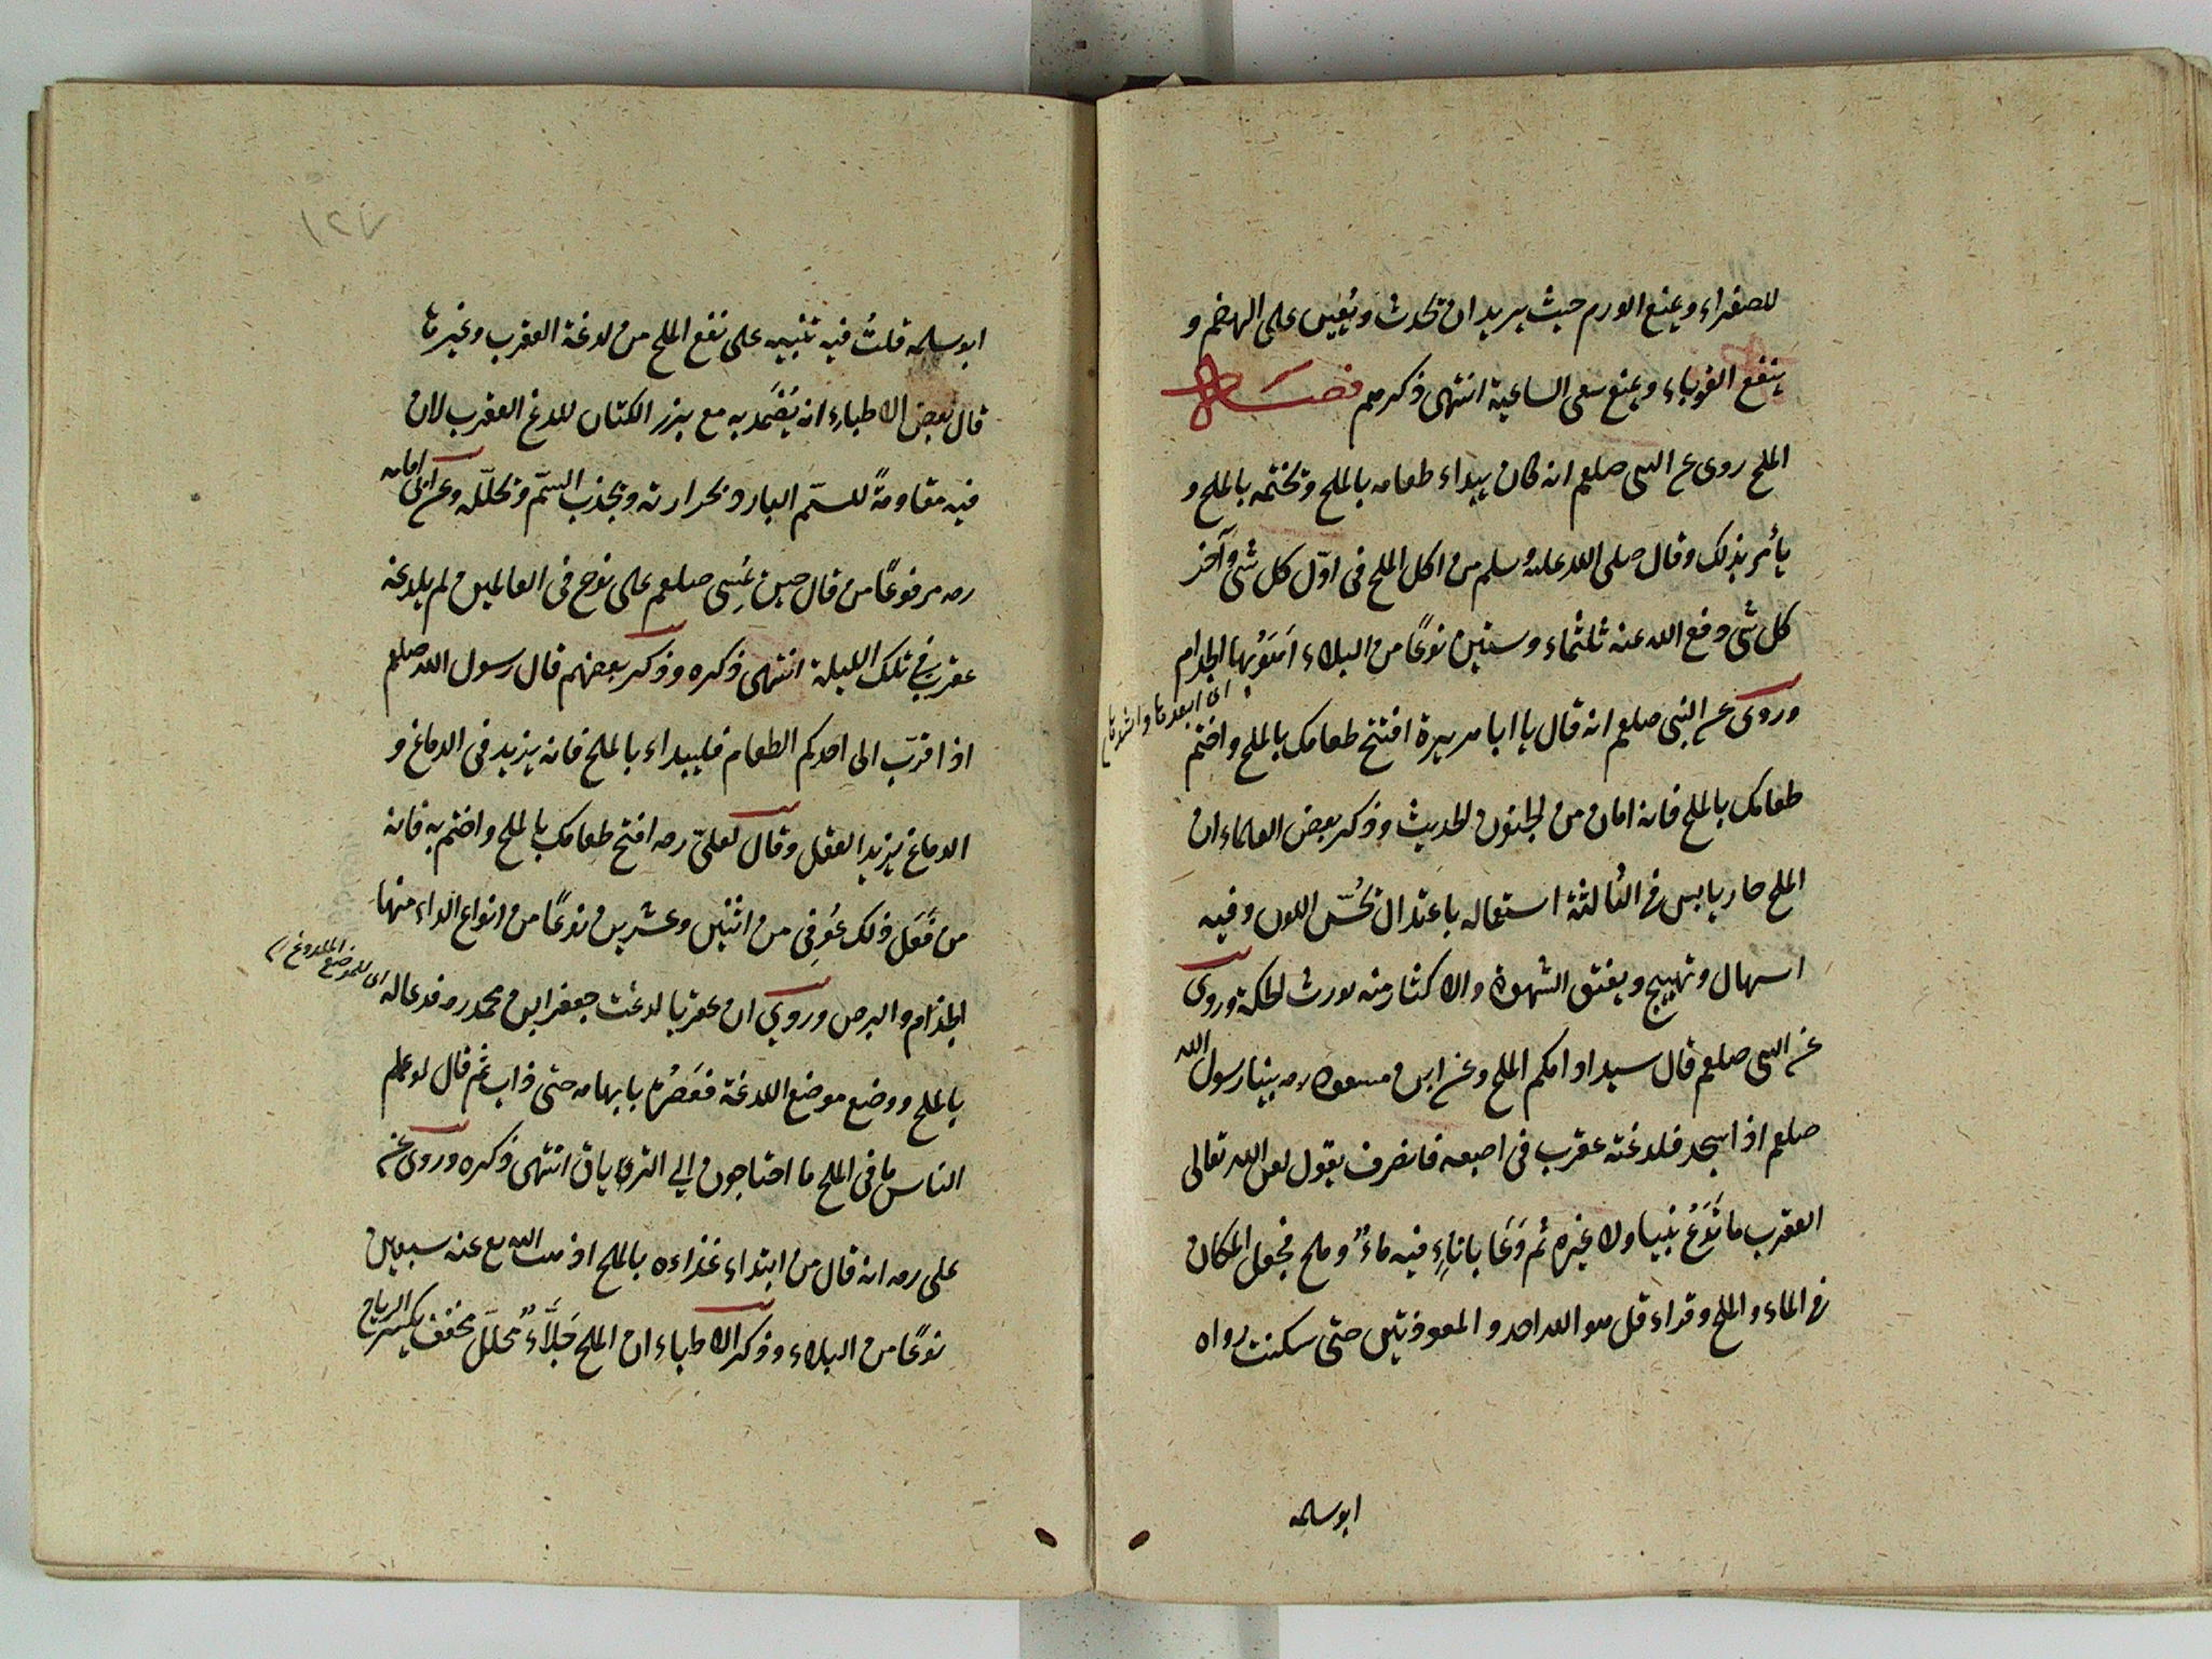 للصفراء ويمنع الورم حيث يريد ان يحدث ويُعين على الهضم و
ينفع القوباء ويمنع سعى الساعية انتهى ذكرهم فصل
الملح روى عن النبى صلعم انه كان يبداء طعامه بالملح ويختمه بالملح و
يأمر بذلك وقال صلى الله عليه وسلم من اكل الملح فى اوّل كل شئ وآخر
كل شئ دفع الله عنه ثلثماء وستين نوعًا من البلاء اَهْوَنُها الجذام
وروى عن النبى صلعم انه قال يا ابا هريرة افتتح طعامك بالملح واختم
طعامك بالملح فانه امان من الجنون الحديث وذكر بعض العلماء ان
الملح حار يابس فى الثالثة استعماله باعتدال يُحسّن اللون وفيه
اسهال وتهييج ويفتق الشهوة والاكثار منه يورث الحكة وروى
عن النبى صلعم قال سيد ادامكم الملح وعن ابن مسعود رضه بينا رسول الله
صلعم اذا سجد فلدغته عقرب فى اصبعه فانصرف يقول لعن الله تعالى
العقرب ما تَدَعُ نبيا ولا غيره ثم دَعَا باناءٍ فيه ماءٌ وملح فجعل المكان
فى الماء والملح وقراء قل هو الله احد والمعوذتين حتى سكنت رواه
ابو سلمه
١٢٧
ابو سلمه قلتُ فيه تنبيه على نفع الملح من لدغة العقرب وغيرها
قال بعض الاطباء انه يُضَمَّد به مع بزر الكتان للدغ العقرب لان
فيه مقاومةً للسمّ البارد بحرارته ويجذب السّم ويحلّله وعن ابى امامه
رضه مرفوعًا من قال حين يُمسِى صلعم على نوح فى العالمين لم يلدغه
عقرب فى تلك الليلة انتهى ذكره وذكر بعضهم قال رسول الله صلعم
اذا قرّب الى احدكم الطعام فليبداء بالملح فانه يزيد فى الدماغ و
الدماغ يزيد العقل وقال لعلىّ رضه افتح طعامك بالملح واختم به فانه
من فَعَل ذلك عُوفِى من اثنين وعشرين نوعًا من انواع الداء منها
الجذام والبرص وروى ان عقربا لدغت جعفر ابن محمد رضه فدعا له
اى للموضع الملدوغ
بالملح ووضع موضع اللدغة فعَصَرَه بابهامه حتى ذاب ثم قال لو علم
الناس ما فى الملح ما احتاجون الى الترياق انتهى ذكره وروى عن
على رضه انه قال من ابتداء غذاءه بالملح اذهب الله تع عنه سبعين
نوعًا من البلاء وذكر الاطباء ان الملح جَلَّاءٌ محلّل مخفف يكسر الرياح